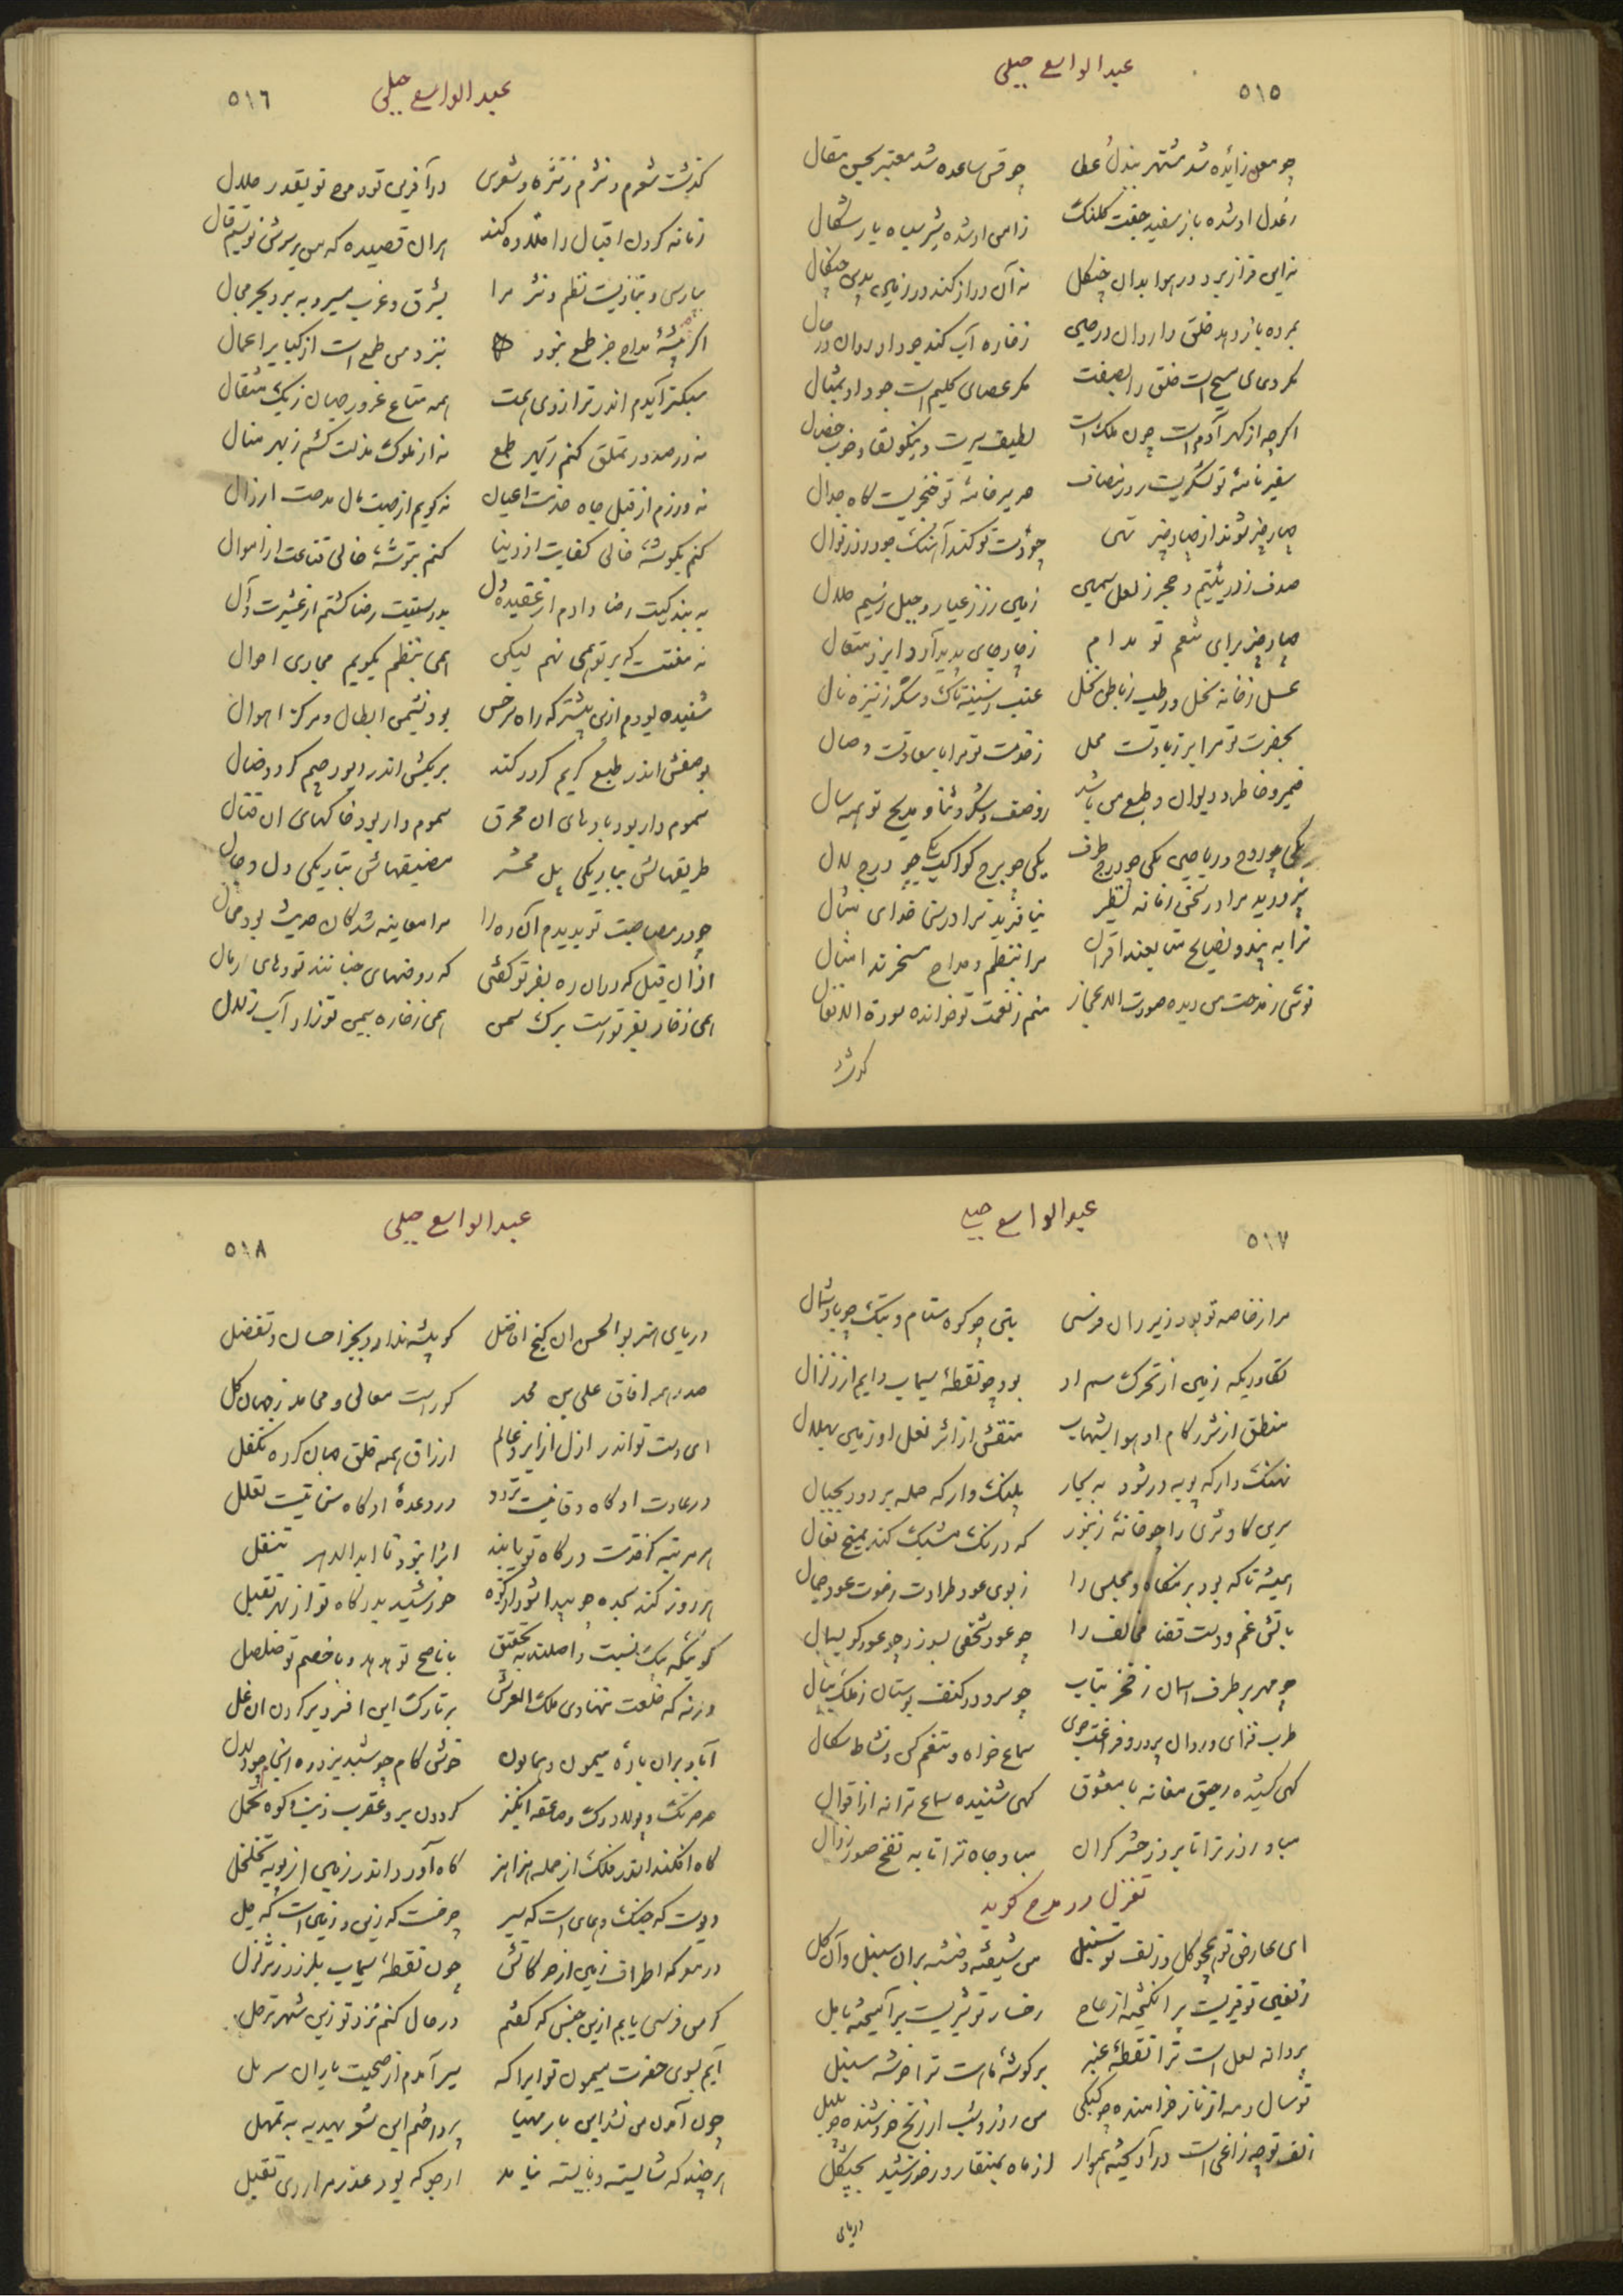 عبدالواسع جبلی
۵۱۵
چو معن زائده شد مشتهر ببذل عطا چو قس ساعده شد معتبر بحسن مقال
ز عدل او شده باز سفید جفت کلنک ز امن او شده شیر سیاه یار شکال
نه این فراز برد در هوا بدان چنگل نه آن دراز کند در زمین بدین چنکال
بمرده باز دهد خلق را روان در حین ز خاره آب کند جود او روان در حال
مکر دمای مسیح است خلق را بصفت مکر عصای کلیم است جود او بمثال
اکرچه از کهر آدم است چون ملک است لطیف سیرت و نیکو لقا و خوب خصال
سفیر نامهٔ تو لشکریست روز مصاف صریر خامهٔ تو خنجریست کاه جدال
چهار چیز شوند از چهار چیز تهی چو دست تو کند آهنک جود روز نوال
صدف ز در یتیم و حجر ز لعل ثمین زمین ز زر عیار و جبل ز سیم حلال
چهار چیز برای تنعم تو مدام ز چار جای پدید آرد ایزد متعال
عسل ز خانه نحل و رطب ز باطن نخل عنب ز سینه تاک و شکر ز نیزه نال
بحضرت تو مرا بر زیادتست محل ز خدمت تو مرا با سعادتست وصال
ضمیر و خاطر و دیوان و طبع من باشد ز وصف و شکر و ثنا و مدیح تو همه سال
یکی چو روح و ریاحین یکی چو درج طرف یکی چو برج کواکب یکی چو درج لال
نپرورید مرا در سخن زمانه نظیر نیافرید ترا در سخا خدای مثال
ترا به پند و نصایح متابعند اقران مرا بنظم و مدایح مسخرند امثال
توئی ز مدحت من دیده صورت الاعجاز منم ز نعمت تو خوانده سورة الانفال
کذشت
عبدالواسع جبلی
۵۱۶
کذشت شعرم و نثرم ز نثره و شعری در آفرین تو در مدح تو بقدر حلال
زمانه کردن اقبال را قلاده کند هران قصیده که من بر سرش نویسم قال
بپارسی و بتازیست نظم و نثر مرا بشرق و غرب مسیر و به بر و بحر مجال
اکر چه پیشهٔ مداح جز طمع نبود بنزد من طمع است از کبایر اعمال
سبکتر آیدم اندر ترازوی همت همه متاع غرور جهان ز یک مثقال
نه در صدور تملق کنم ز بهر طمع نه از ملوک مذلت کشم ز بهر منال
نه ورزم از قبل جاه خدمت اعیان نه کویم از جهت مال مدحت ارذال
کنم بکوشهٔ خالی کفایت از دنیا کنم بتوشهٔ خالی قناعت از اموال
نه منتست که بر تو همی نهم لیکن همی بنظم بکویم مجاری احوال
شنیده بودم ازین پیشتر که راه سرخس بود نشیمن ابطال و مرکز اهوال
بوصفش اندر طبع کریم کردد کند بریکش اندر دیو رحیم کردد ضال
سموم وار بود بادهای ان محرق سموم دار بود خاکهای ان قتال
طریقهاش بباریکی پل محشر مضیقهاش بتاریکی دل دجال
چو در مصاحبت تو بدیدم آن ره را مرا معاینه شد کان حدیث بود محال
از ان قبل که در ان ره بفر تو کفتی که روضهای جنانند تودهای رمال
همی ز خار بفر تو رست برک سمن همی ز خاره بیمن تو زاد آب زلال
عبدالواسع جبلی
۵۱۷
مرا ز خاصه تو بود زیر ران فرسی بتن چو کوه ستام و بتک چو باد شمال
تکاوریکه زمین از تحرک سم او بود چو نقطهٔ سیماب دایم از زلزال
منطق از شرر کام او هوا بشهاب منقش از اثر نعل او زمین بهلال
نهنک وار که پویه در شود به بحار پلنک وار که حمله بر دود بجبال
سرین کاو ثری را چو خانهٔ زنبور که درنک مشبک کند بمیخ نعال
همیشه تا که بود بزمکاه و مجلس را ز بوی عود طراوت ز صوت عود جمال
باتش غم و دست قضا مخالف را چو عود شخص بسوز و چو عود کوش بمال
چو مهر بر طرف اسمان ز فخر بتاب چو سرو در کنف بوستان ز ملک ببال
طرب فزای و روان پرور و فراغت جوی سماع خواه و تنعم کن و نشاط سکال
کهی کشیده رحیق مغانه با معشوق کهی شنیده سماع ترانه از قوال
مباد روز ترا تا بروز حشر کران مباد جاه ترا تا به نفخ صور زوال
تغزل در مدح کوید
ای عارض تو همچو کل و زلف تو سنبل من شیفته و فتنه بران سنبل و آن کل
زلفین تو قیریست بر انکیخته از عاج رخسار تو شیریست بر آمیخته با مل
بر دانه لعل است ترا نقطهٔ عنبر بر کوشهٔ ماه است ترا خوشه سنبل
تو سال و مه از ناز خرامنده چو کبکی من روز و شب از رنج خروشنده چو بلبل
زلف تو چه زاغی است در آویخته هموار از ماه بمنقار و ز خورشید بچنکل
دریای
عبدالواسع جبلی
۵۱۸
دریای هنر بوالحسن ان کنج افاضل کو پیشه ندارد بجز احسان و تفضل
صدر همه افاق علی بن محمد کوراست معالی و محامد ز جهان کل
ای دست تو اندر ازل از ایزد عالم ارزاق همه خلق جهان کرده تکفل
در عادت او کاه وفا نیست تردد در وعدهٔ او کاه سخا نیست تعلل
هر مرتبه کز خدمت درکاه تو یابند انرا نبود تا ابدالدهر تنقل
هر روز کند سجده چو پیدا شود از کوه خورشید بدرکاه تو از بهر تقبل
کوئیکه بیک نسبت و اصلند بتحقیق با ناصح تو هدهد و با خصم تو صلصل
ورنه که خلعت ننهادی ملک العرش بر تارک این افسر و بر کردن ان غل
آباد بران بارهٔ میمون و همایون خوش کام چو شبدیز و ره انجام چو دلدل
صرصر تک و پولاد رک و صاعقه انکیز کردون بر و عقرب دم و کوه تحمل
کاه افکند اندر فلک از حمله هزاهز کاه آورد اندر زمی از پویه تخلخل
دیویست که جنک و همای است که سیر چرخست که زین و زمین است که جل
در معرکه اطراف زمین از حرکاتش چون نقطهٔ سیماب بلرزد ز تزلزل
کر من فرسی یابم ازین جنس که کفتم در حال کنم نزد تو زین شهر ترحل
آیم بسوی حضرت میمون تو ایرا که سیر آمدم از صحبت یاران سر پل
چون آمدن من نشد این بار مهیا پرداختم این شعر بدیهه به تمهل
هر چند که شایسته و بایسته نیامد ارجو که بود عذر مرا روی تقبل